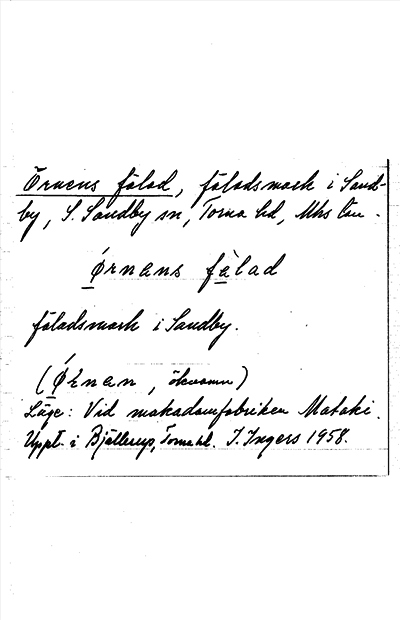 Örnens fälad, fäladsmark i Sand-
by, S. Sandby sn, Torna hd, Mhs län.
Ørnans fàlad
fäladsmark i Sandby.
(Ørnan, öknamn)
Läge: Vid makadamfabriken Mataki.
Uppt. i Bjällerup, Torna hd. I. Ingers 1958.